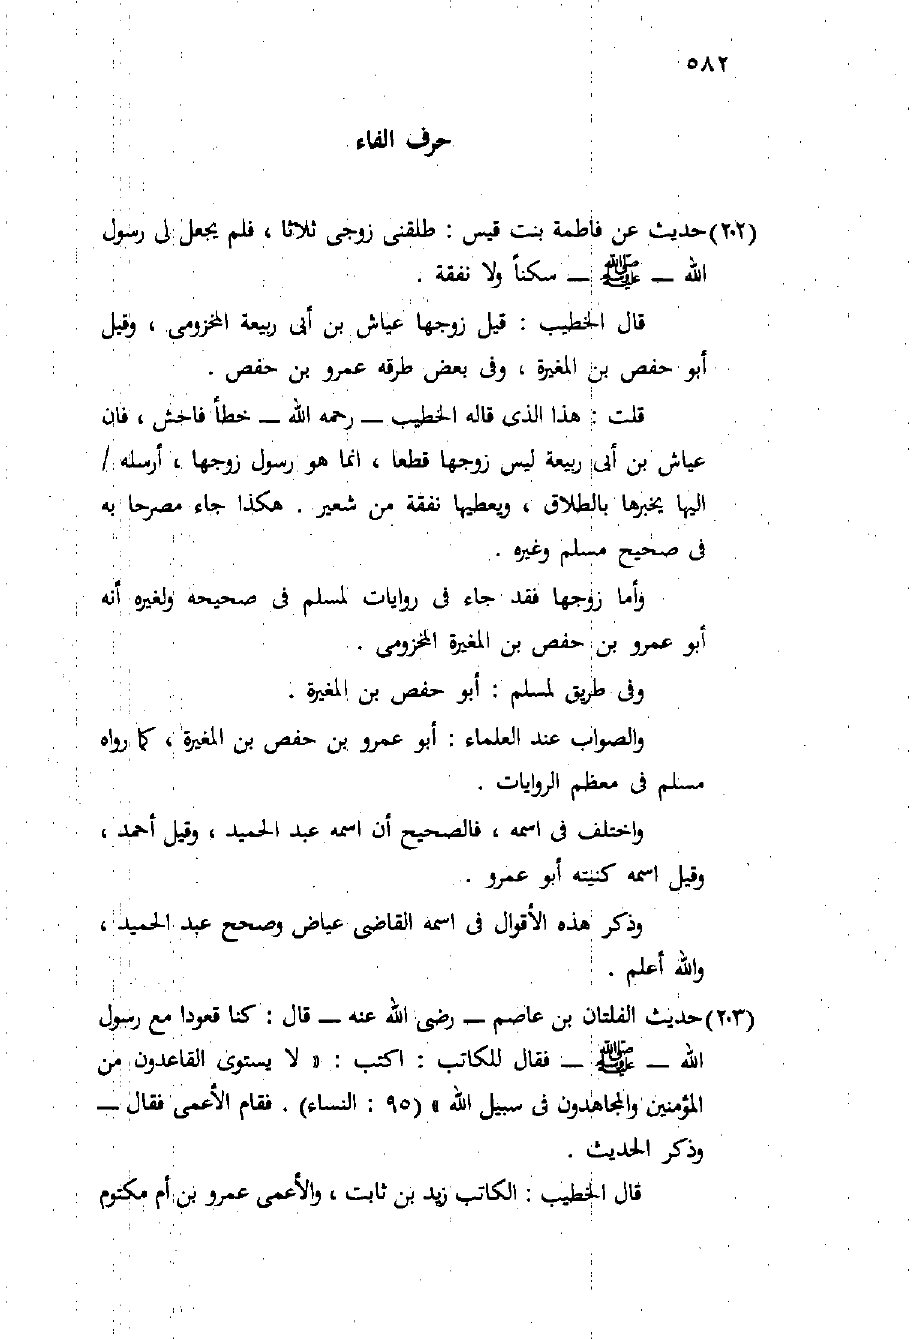 ٥٨٢
حرف الفاء
(٢٠٢) حديث عن فاطمة بنت قيس : طلقنى زوجى ثلاثا ، فلم يجعل لى رسول
الله ــ ﷺ ــ سكناً ولا نفقة .
قال الخطيب : قيل زوجها عياش بن أبى ربيعة المخزومى ، وقيل
أبو حفص بن المغيرة ، وفى بعض طرقه عمرو بن حفص .
قلت : هذا الذى قاله الخطيب ــ رحمه الله ــ خطأ فاحش ، فان
عياش بن أبى ربيعة ليس زوجها قطعا ، انما هو رسول زوجها ، أرسله /
اليها يخبرها بالطلاق ، ويعطيها نفقة من شعير . هكذا جاء مصرحا به
فى صحيح مسلم وغيره .
وأما زوجها فقد جاء فى روايات لمسلم فى صحيحه ولغيره أنه
أبو عمرو بن حفص بن المغيرة المخزومى .
وفى طريق لمسلم : أبو حفص بن المغيرة .
والصواب عند العلماء : أبو عمرو بن حفص بن المغيرة ، كما رواه
مسلم فى معظم الروايات .
واختلف فى اسمه ، فالصحيح أن اسمه عبد الحميد ، وقيل أحمد ،
وقيل اسمه كنيته أبو عمرو .
وذكر هذه الأقوال فى اسمه القاضى عياض وصحح عبد الحميد ،
والله أعلم .
(٢٠٣) حديث الفلتان بن عاصم ــ رضى الله عنه ــ قال : كنا قعودا مع رسول
الله ــ ﷺ ــ فقال للكاتب : اكتب : « لا يستوى القاعدون من
المؤمنين والمجاهدون فى سبيل الله » (٩٥ : النساء) . فقام الأعمى فقال ــ
وذكر الحديث .
قال الخطيب : الكاتب زيد بن ثابت ، والأعمى عمرو بن أم مكتوم